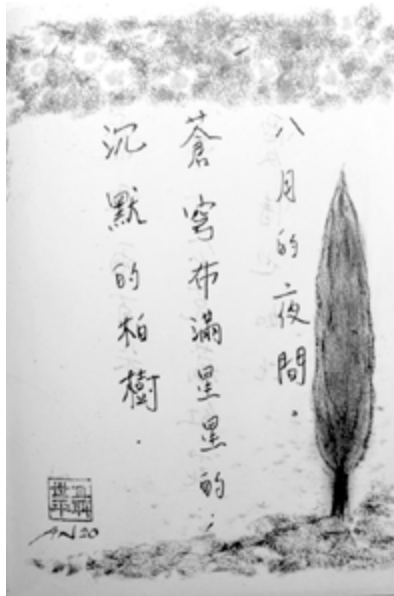 八月的夜間。
蒼穹布滿星星的，
沉默的柏樹．
AN20